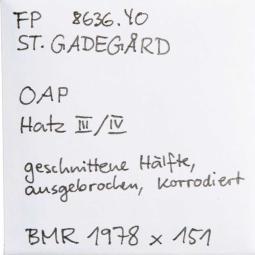 FP 8636.40
ST. GADEGÅRD
OAP
Hatz III/IV
geschnittene Hälfte,
ausgebrochen, korrodiert
BMR 1978 x 151